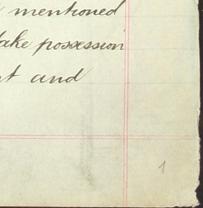 mentioned
take possession
and
1